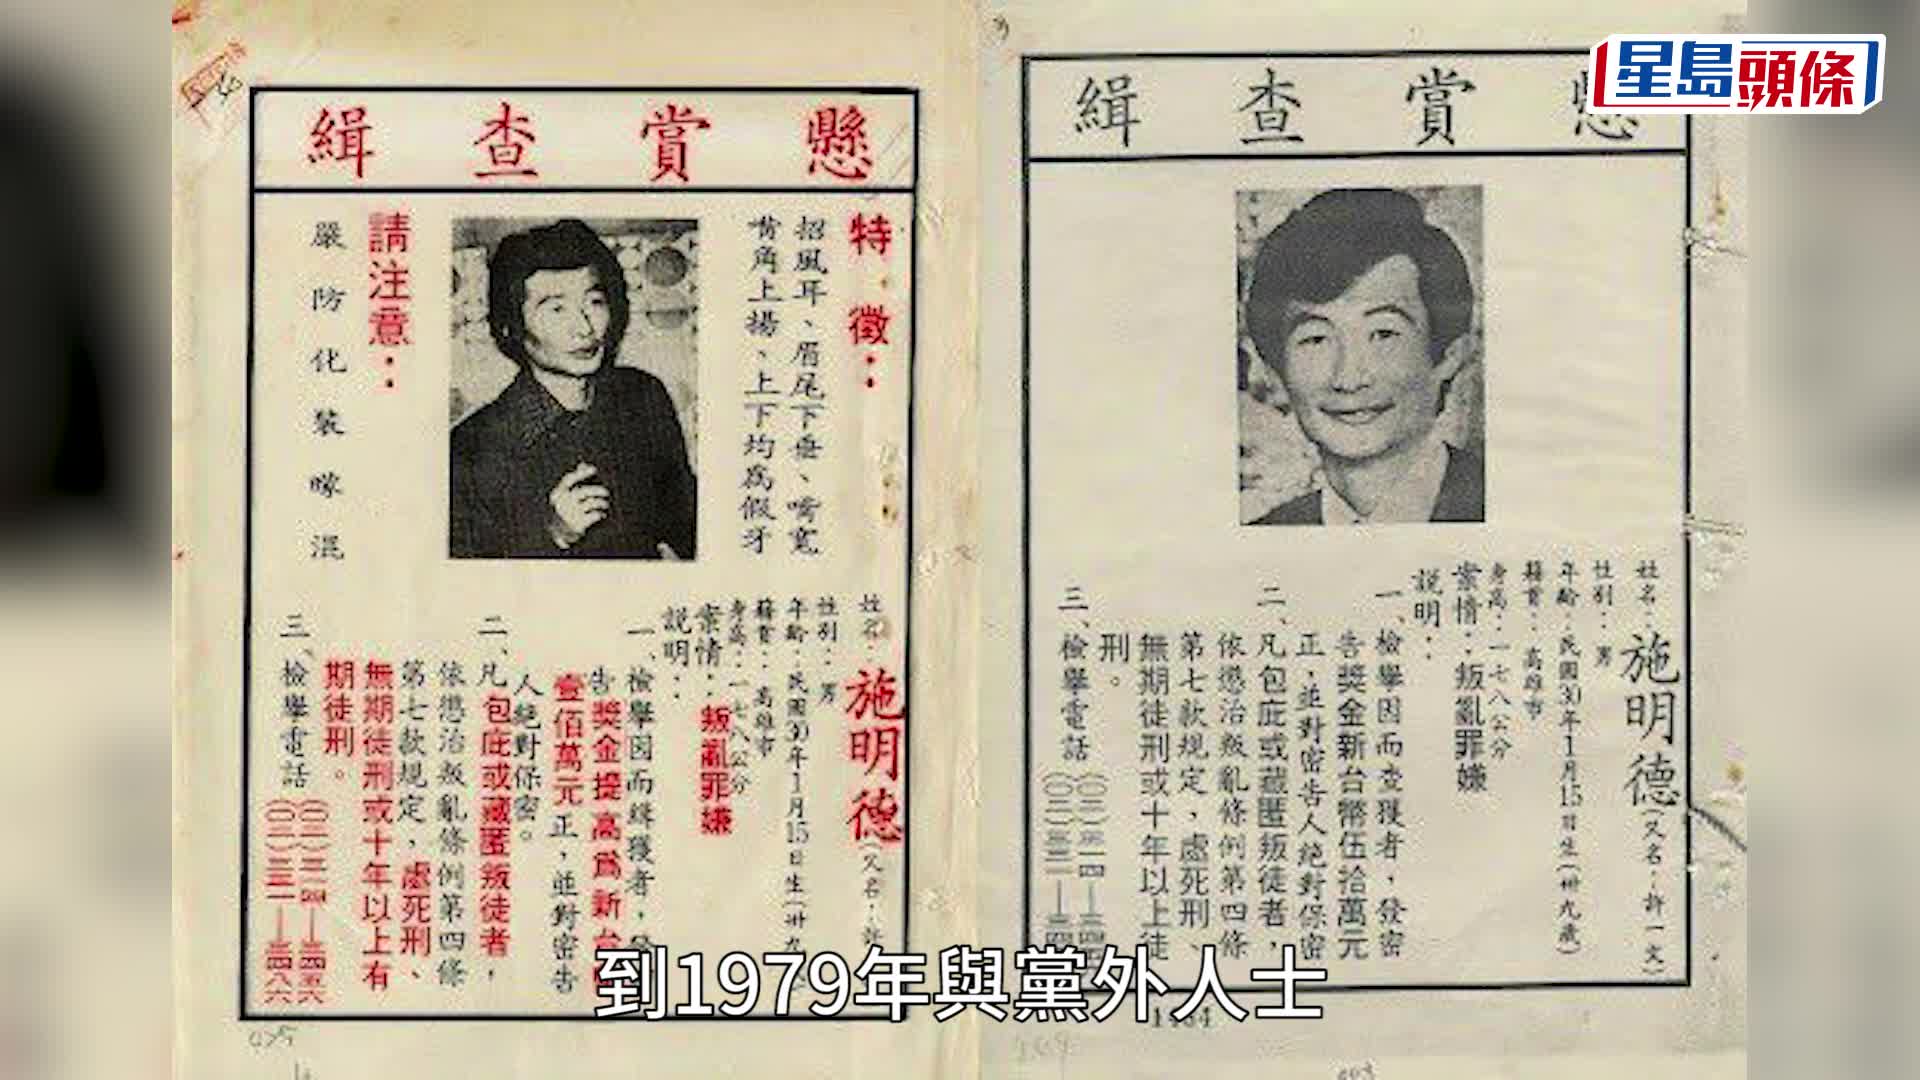 星島頭條
懸賞查緝
特徵：
招風耳、眉尾下垂、嘴寬
嘴角上揚、上下均為假牙
請注意：
嚴防化裝矇混
姓名：施明德(又名：許
性別：男
年齡：民國30年1月15日生(卅九
籍貫：高雄市
身高：一七八公分
案情：叛亂罪嫌
說明：
一、檢舉因而緝獲者，發
告獎金提高為新台
壹佰萬元正，並對密告
人絕對保密。
二、凡包庇或藏匿叛徒者，
依懲治叛亂條例第四條
第七款規定，處死刑、
無期徒刑或十年以上有
期徒刑。
三、檢舉電話
懸賞查緝
姓名：施明德(又名：許一文)
性別：男
年齡：民國30年1月15日生(卅九歲)
籍貫：高雄市
身高：一七八公分
案情：叛亂罪嫌
說明：
一、檢舉因而查獲者，發密
告獎金新台幣伍拾萬元
正，並對密告人絕對保密
二、凡包庇或藏匿叛徒者，
依懲治叛亂條例第四條
第七款規定，處死刑、
無期徒刑或十年以上徒
刑。
三、檢舉電話
到1979年與黨外人士